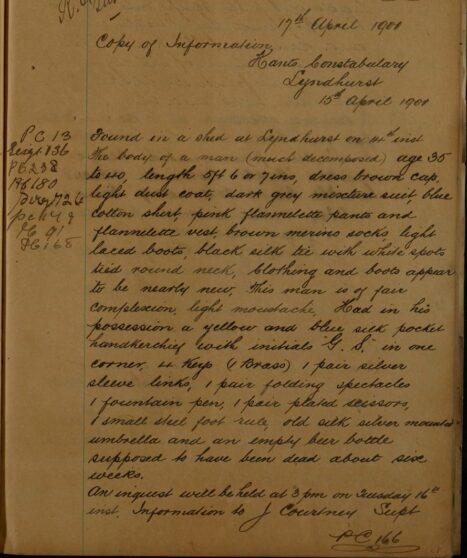 17th April 1901
Copy of Information
Hants Constabulary
Lyndhurst
15th April 1901
PC 13
Sergt 136
PC 238
PC 49
PC 91
PC 168
Found in a shed at Lyndhurst on 14th inst
the body of a man (much decomposed) age 35
to 40, length 5ft 6 or 7ins, dress brown cap,
light dust coat, dark grey mixture suit, blue
cotton shirt, pink flannelette pants and
flannelette vest, brown merino socks, light
laced boots, black silk tie with white spots
tied round neck, Clothing and boots appear
to be nearly new, This man is of fair
complexion, light moustache, Had in his
possession a yellow and blue silk pocket
handkerchief with initials "G. S." in one
corner, 4 Keys (1 Brass) 1 pair silver
sleeve links, 1 pair folding spectacles
1 fountain pen, 1 pair plated scissors,
1 small steel foot rule, old silk silver mounted
umbrella and an empty beer bottle
supposed to have been dead about six
weeks.
An inquest will be held at 3 pm on Tuesday 16th
inst. Information to J Courtney Supt
PC 166